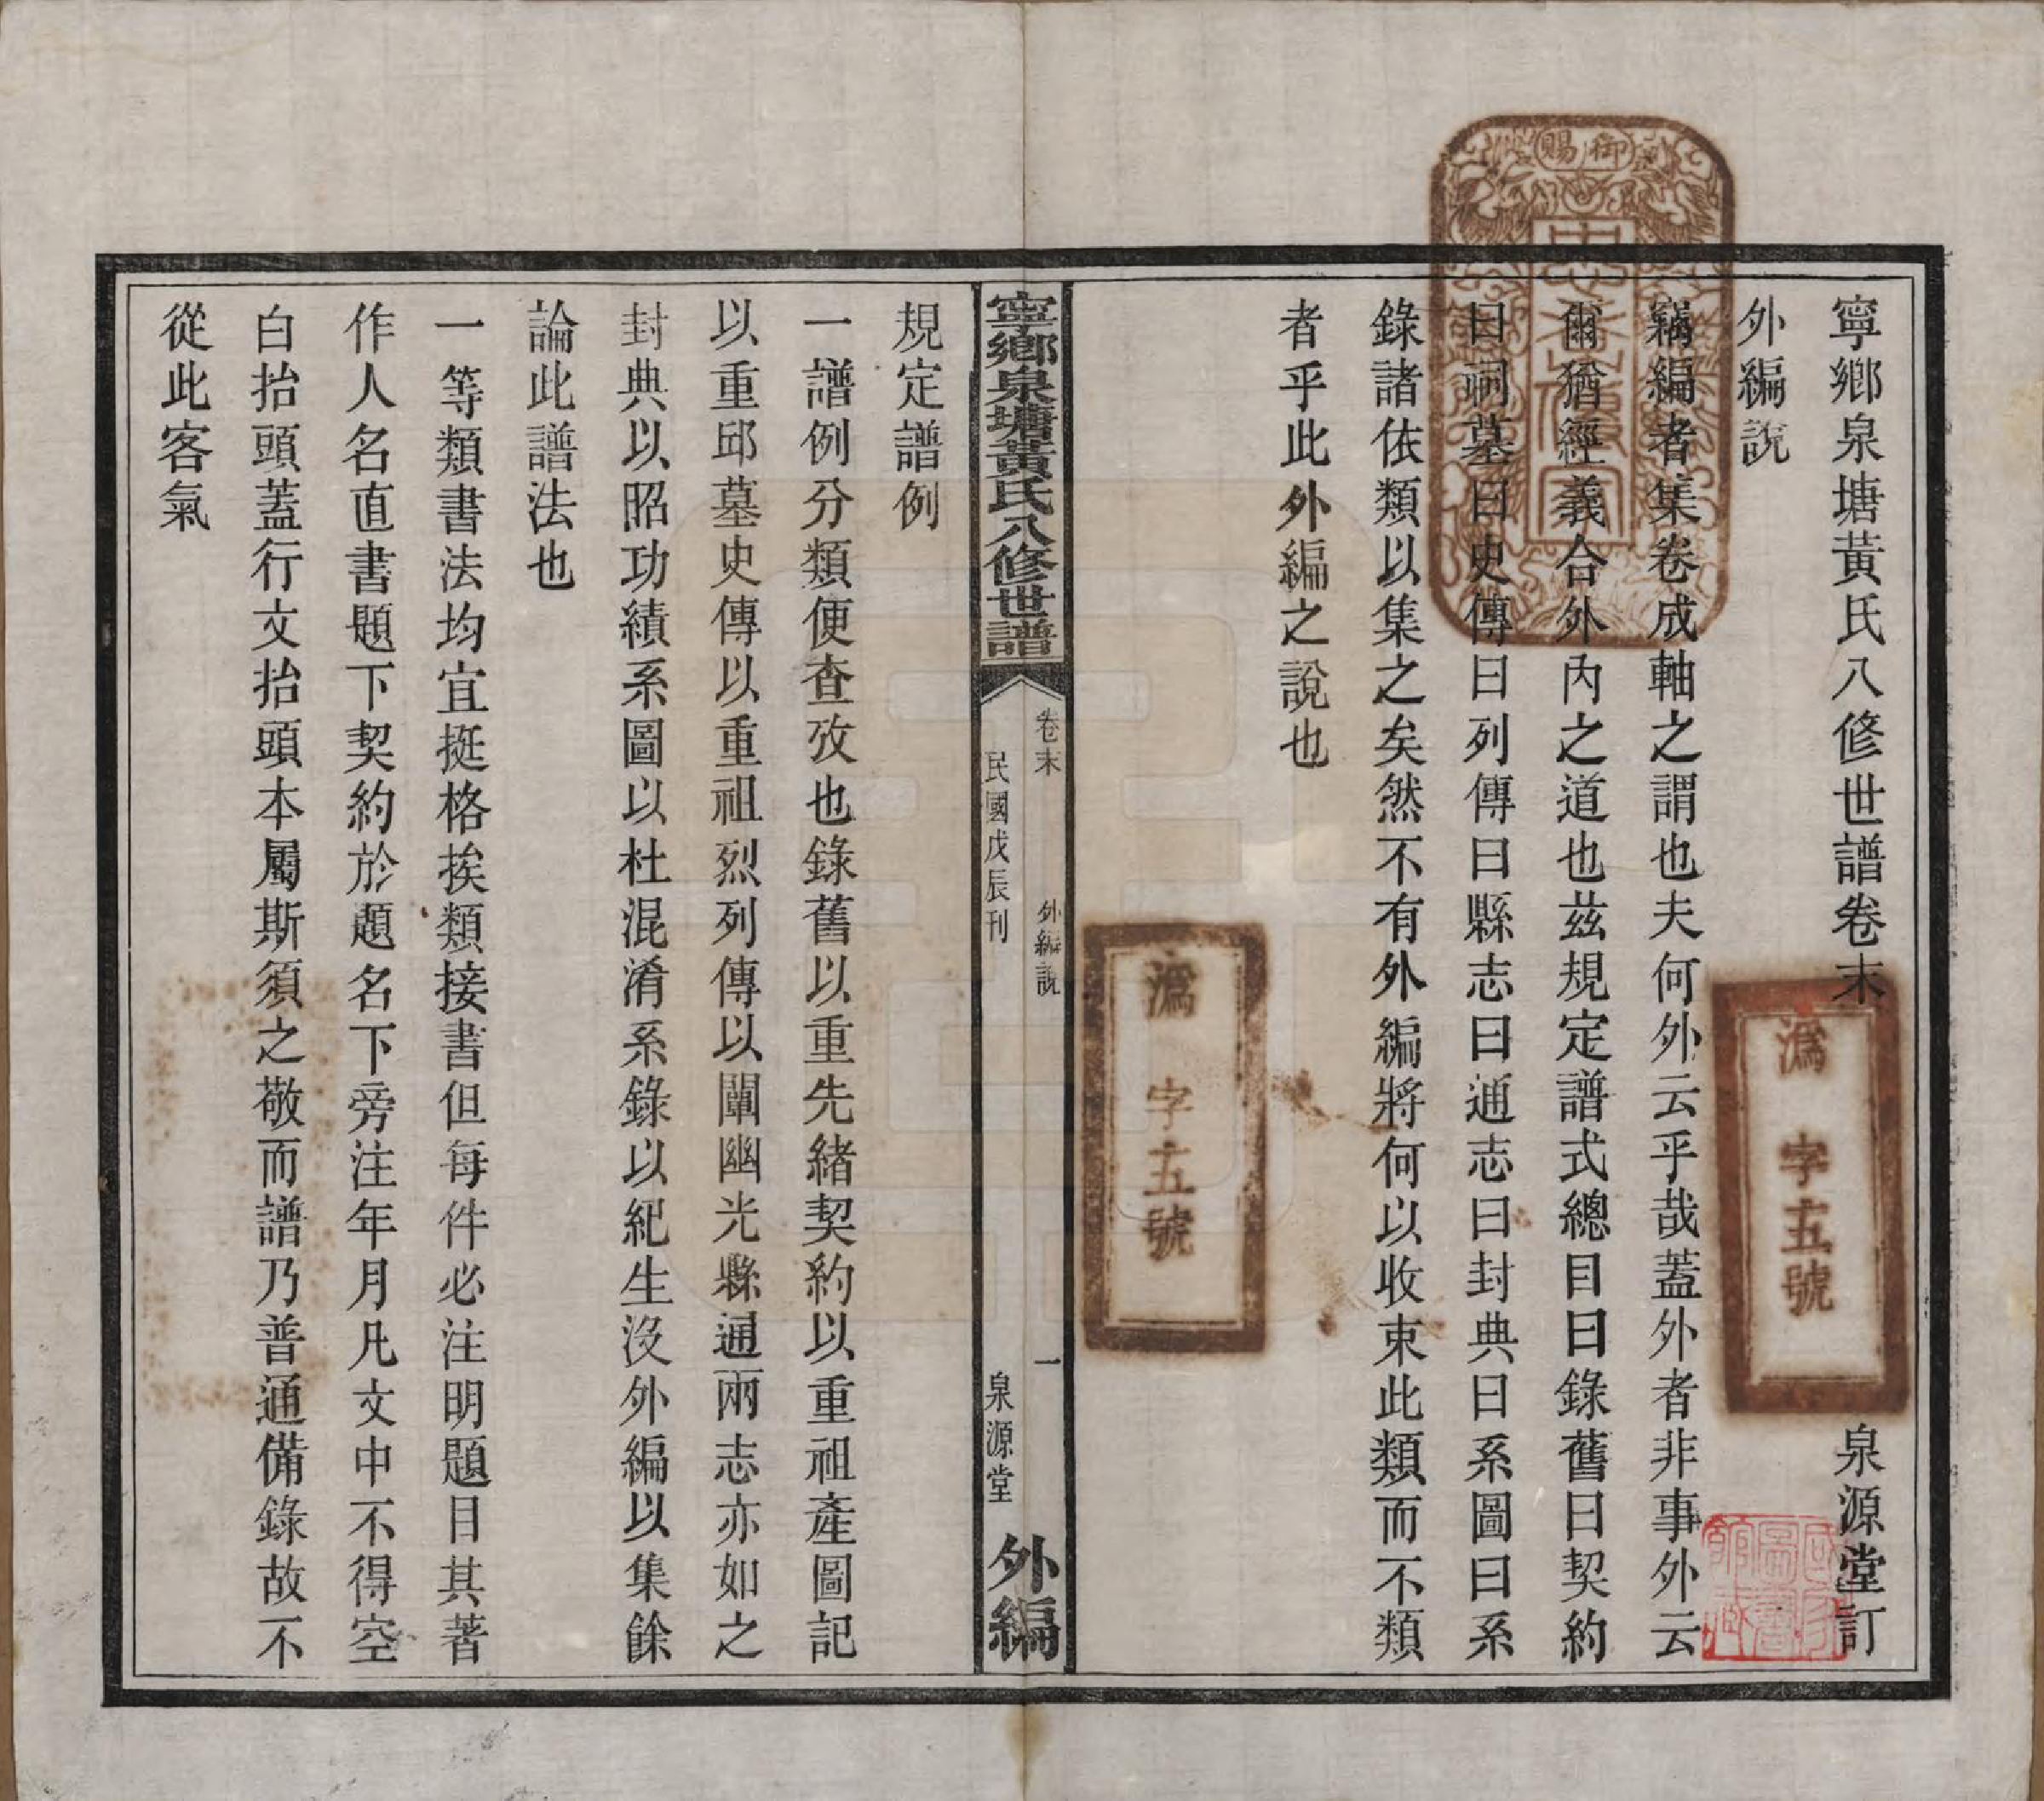 寧鄉泉塘黃氏八修世譜卷末
泉源堂訂
外編說
竊編者集卷成軸之謂也夫何外云乎哉蓋外者非事外云
爾猶經義合外內之道也茲規定譜式總目曰錄舊曰契約
曰祠墓曰史傳曰列傳曰縣志曰通志曰封典曰系圖曰系
錄諸依類以集之矣然不有外編將何以收束此類而不類
者乎此外編之說也
御賜
溈字五號
溈字五號
寧鄉泉塘黃氏八修世譜
卷末
外編說
一
民國戊辰刊
泉源堂
外編
規定譜例
一譜例分類便查攷也錄舊以重先緒契約以重祖產圖記
以重邱墓史傳以重祖烈列傳以闡幽光縣通兩志亦如之
封典以昭功績系圖以杜混淆系錄以紀生沒外編以集餘
論此譜法也
一等類書法均宜挺格挨類接書但每件必注明題目其著
作人名直書題下契約於題名下旁注年月凡文中不得空
白抬頭蓋行文抬頭本屬斯須之敬而譜乃普通備錄故不
從此客氣